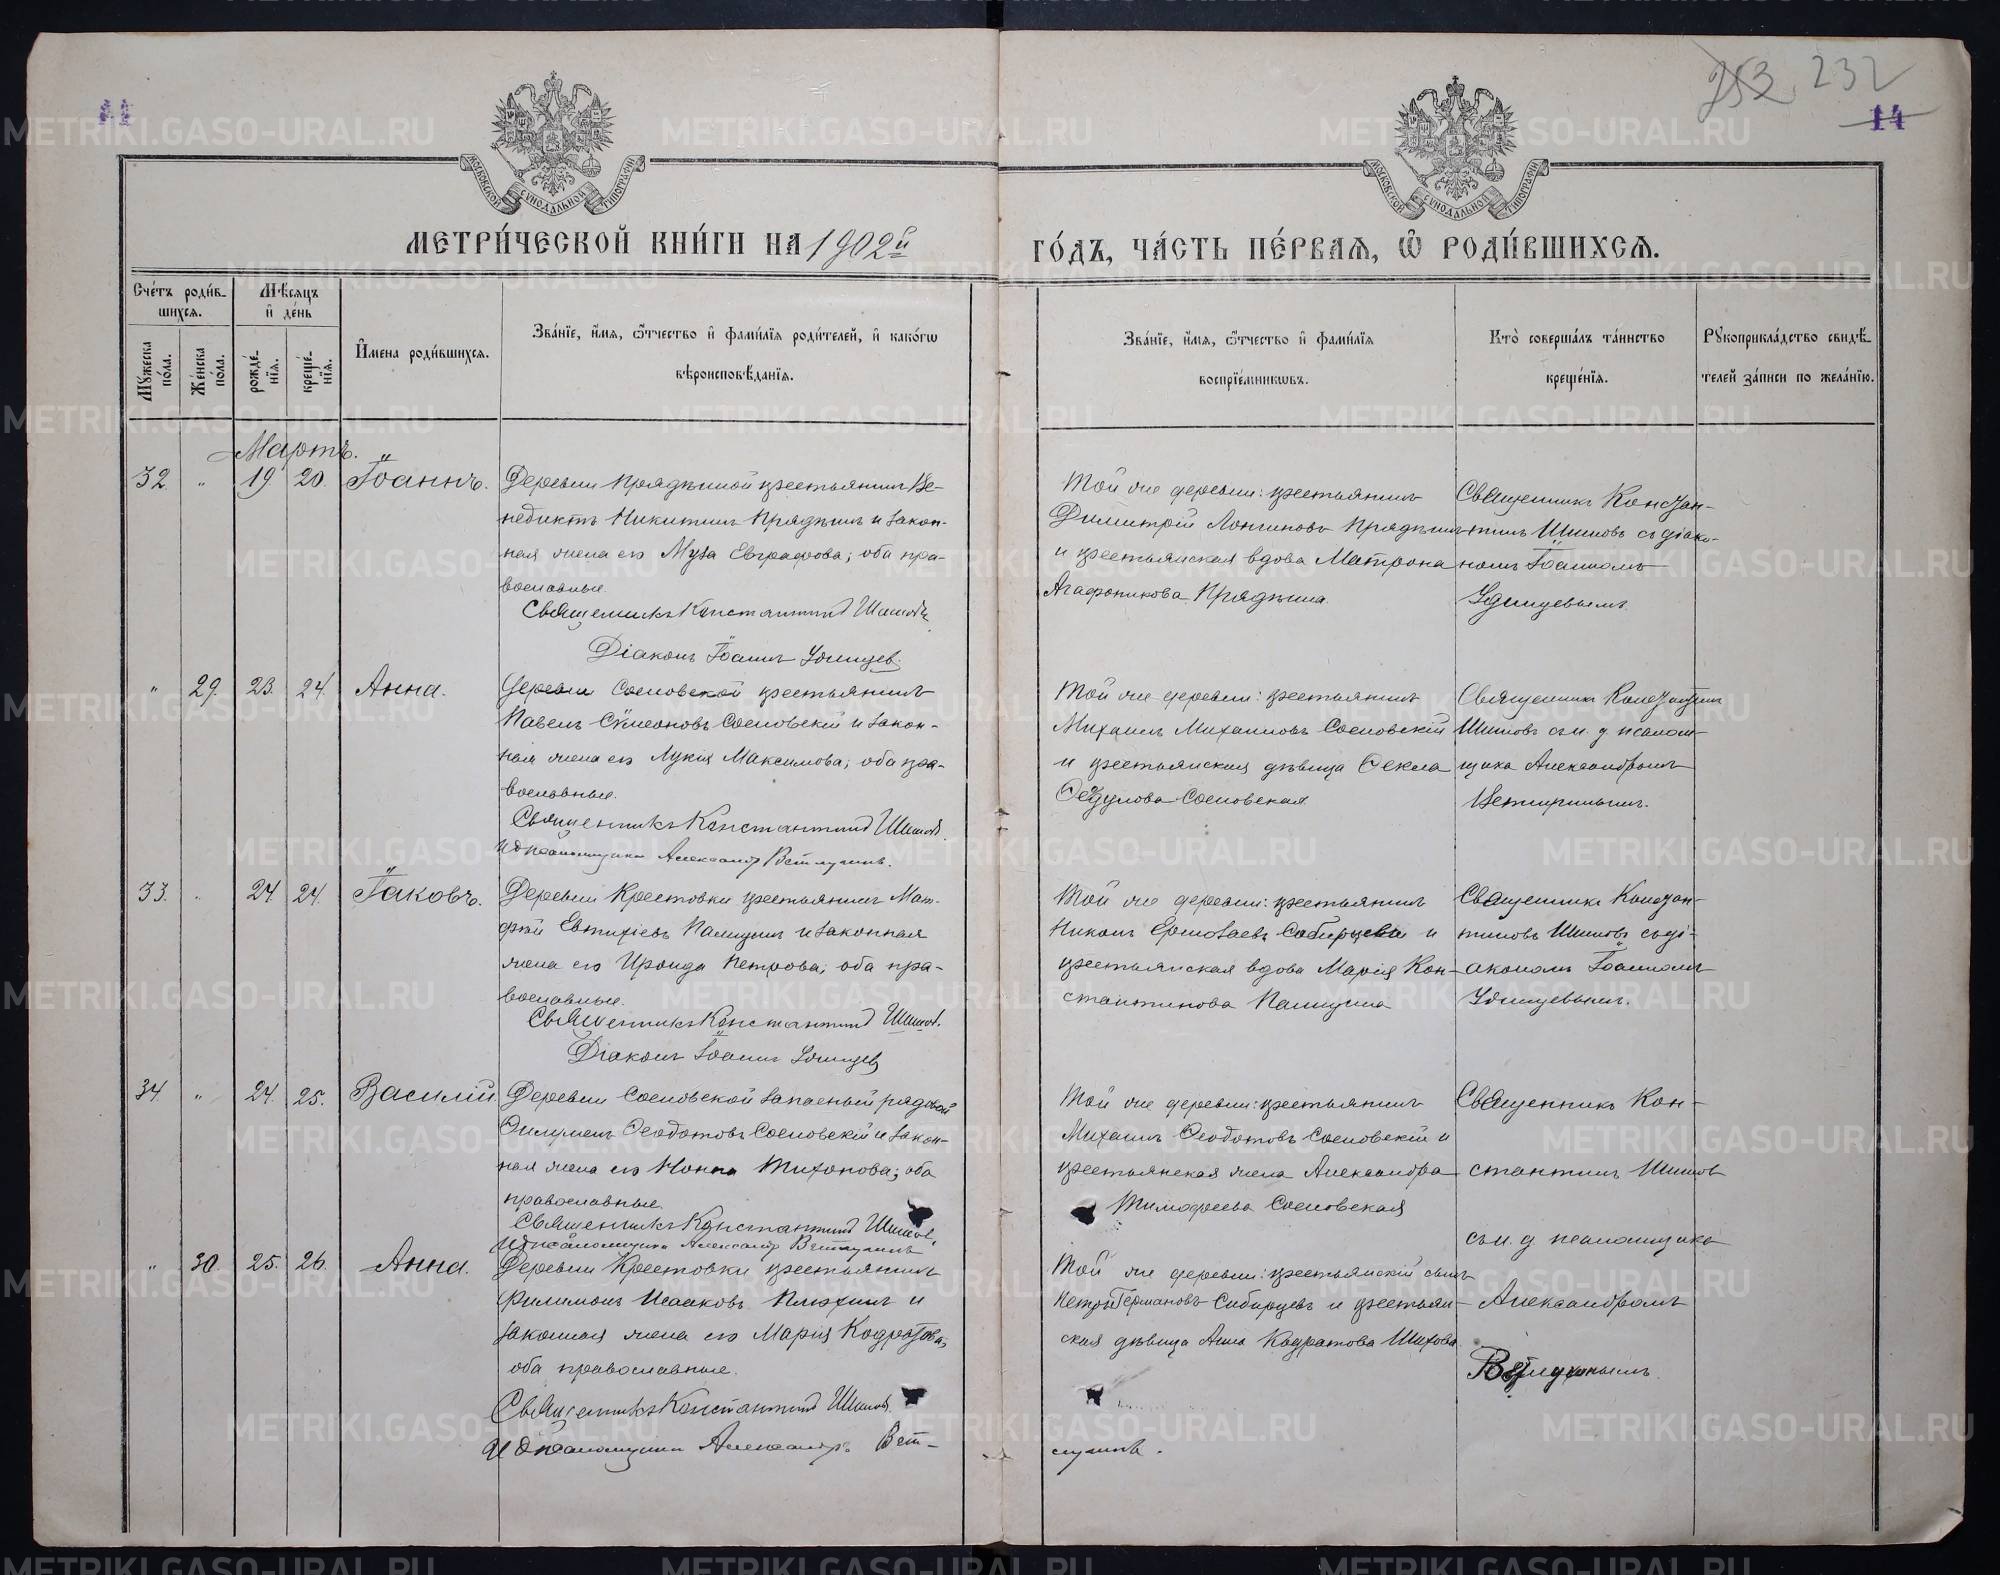 253 232
11
14
МОСКОВСКОЙ СѴНОДАЛЬНОЙ ТИПОГРАФІИ
МОСКОВСКОЙ СѴНОДАЛЬНОЙ ТИПОГРАФІИ
МЕТРИ́ЧЕСКОЙ КНИ́ГИ НА 1902й
ГО́ДЪ, ЧА́СТЬ ПЕ́РВАЯ, Ѽ РОДИ́ВШИХСЯ.
Сче́тъ роди́в-
шихся.
Мѣ́сяцъ
и҆ де́нь
Мꙋжеска по́ла.
Же́нска по́ла.
рожде́нїя.
креще́нїя.
И҆мена роди́вшихся.
Зва́нїе, и҆́мя, ѻ҆́тчество и҆ фами́лїя роди́телей, и҆ како́гѡ
вѣроисповѣ́данїя.
Зва́нїе, и҆́мя, ѻ҆́тчество и҆ фами́лїя
воспрїе́мникѡвъ.
Кто̀ соверша́лъ та́инство
креще́нїя.
Рꙋкоприкла́дство свидѣ́-
телей за́писи по жела́нїю.
Мартъ.
32. " 19. 20. Іоаннъ.
Деревни Прядѣиной крестьянинъ Ве-
недиктъ Никитинъ Прядѣинъ и закон-
ная жена его Муза Евграфова; оба пра-
вославные.
Священникъ Константинъ Шишовъ
Діаконъ Іоаннъ Удинцев.
Той же деревни: крестьянинъ
Димитрій Лонгиновъ Прядѣинъ
и крестьянская вдова Матрона
Агафоникова Прядѣина.
Священникъ Констан-
тинъ Шишовъ съ діако-
номъ Іоанномъ
Удинцевымъ.
" 29. 23. 24. Анна.
Деревни Сосновской крестьянинъ
Павелъ Сѵмеоновъ Сосновскій и закон-
ная жена его Лукія Максимова; оба пра-
вославные.
Священникъ Константинъ Шишовъ.
И д псаломщика Александръ Ветлугинъ.
Той же деревни: крестьянинъ
Михаилъ Михаиловъ Сосновскій
и крестьянская дѣвица Ѳекла
Ѳедулова Сосновская.
Священникъ Константинъ
Шишовъ съ и. д псалом-
щика Александромъ
Ветлугинымъ.
33. " 24 24. Іаковъ.
Деревни Крестовки крестьянинъ Мат-
фій Евтихіевъ Палицинъ и законная
жена его Ираида Петрова; оба пра-
вославные.
Священникъ Константинъ Шишов.
Діаконъ Іоаннъ Удинцев
Той же деревни: крестьянинъ
Никонъ Ермолаевъ Сибирцевъ и
крестьянская вдова Марія Кон-
стантинова Палицина
Священникъ Констан-
тиновъ Шишовъ съ ді-
акономъ Іоанномъ
Удинцевымъ.
34. " 24. 25. Василій.
Деревни Сосновской запасный рядовой
Филуменъ Ѳеодотовъ Сосновскій и закон-
ная жена его Нонна Тихонова; оба
православные.
Священникъ Константинъ Шишов.
И д псаломщика Александръ Ветлугинъ
Той же деревни: крестьянинъ
Михаилъ Ѳеодотовъ Сосновскій и
крестьянская жена Александра
Тимофеева Сосновская
Священникъ Кон-
стантинъ Шишов
съ и. д псаломщика
Александромъ
Ветлугинымъ.
" 30. 25. 26. Анна.
Деревни Крестовки крестьянинъ
Филимонъ Исааковъ Плюхинъ и
законная жена его Марія Кодратова;
оба православные.
Священникъ Константинъ Шишовъ.
И д псаломщика Александръ Вет-
лугинъ.
Той же деревни: крестьянскій сынъ
Петръ Германовъ Сибирцевъ и крестьян-
ская дѣвица Анна Кодратова Шихова.